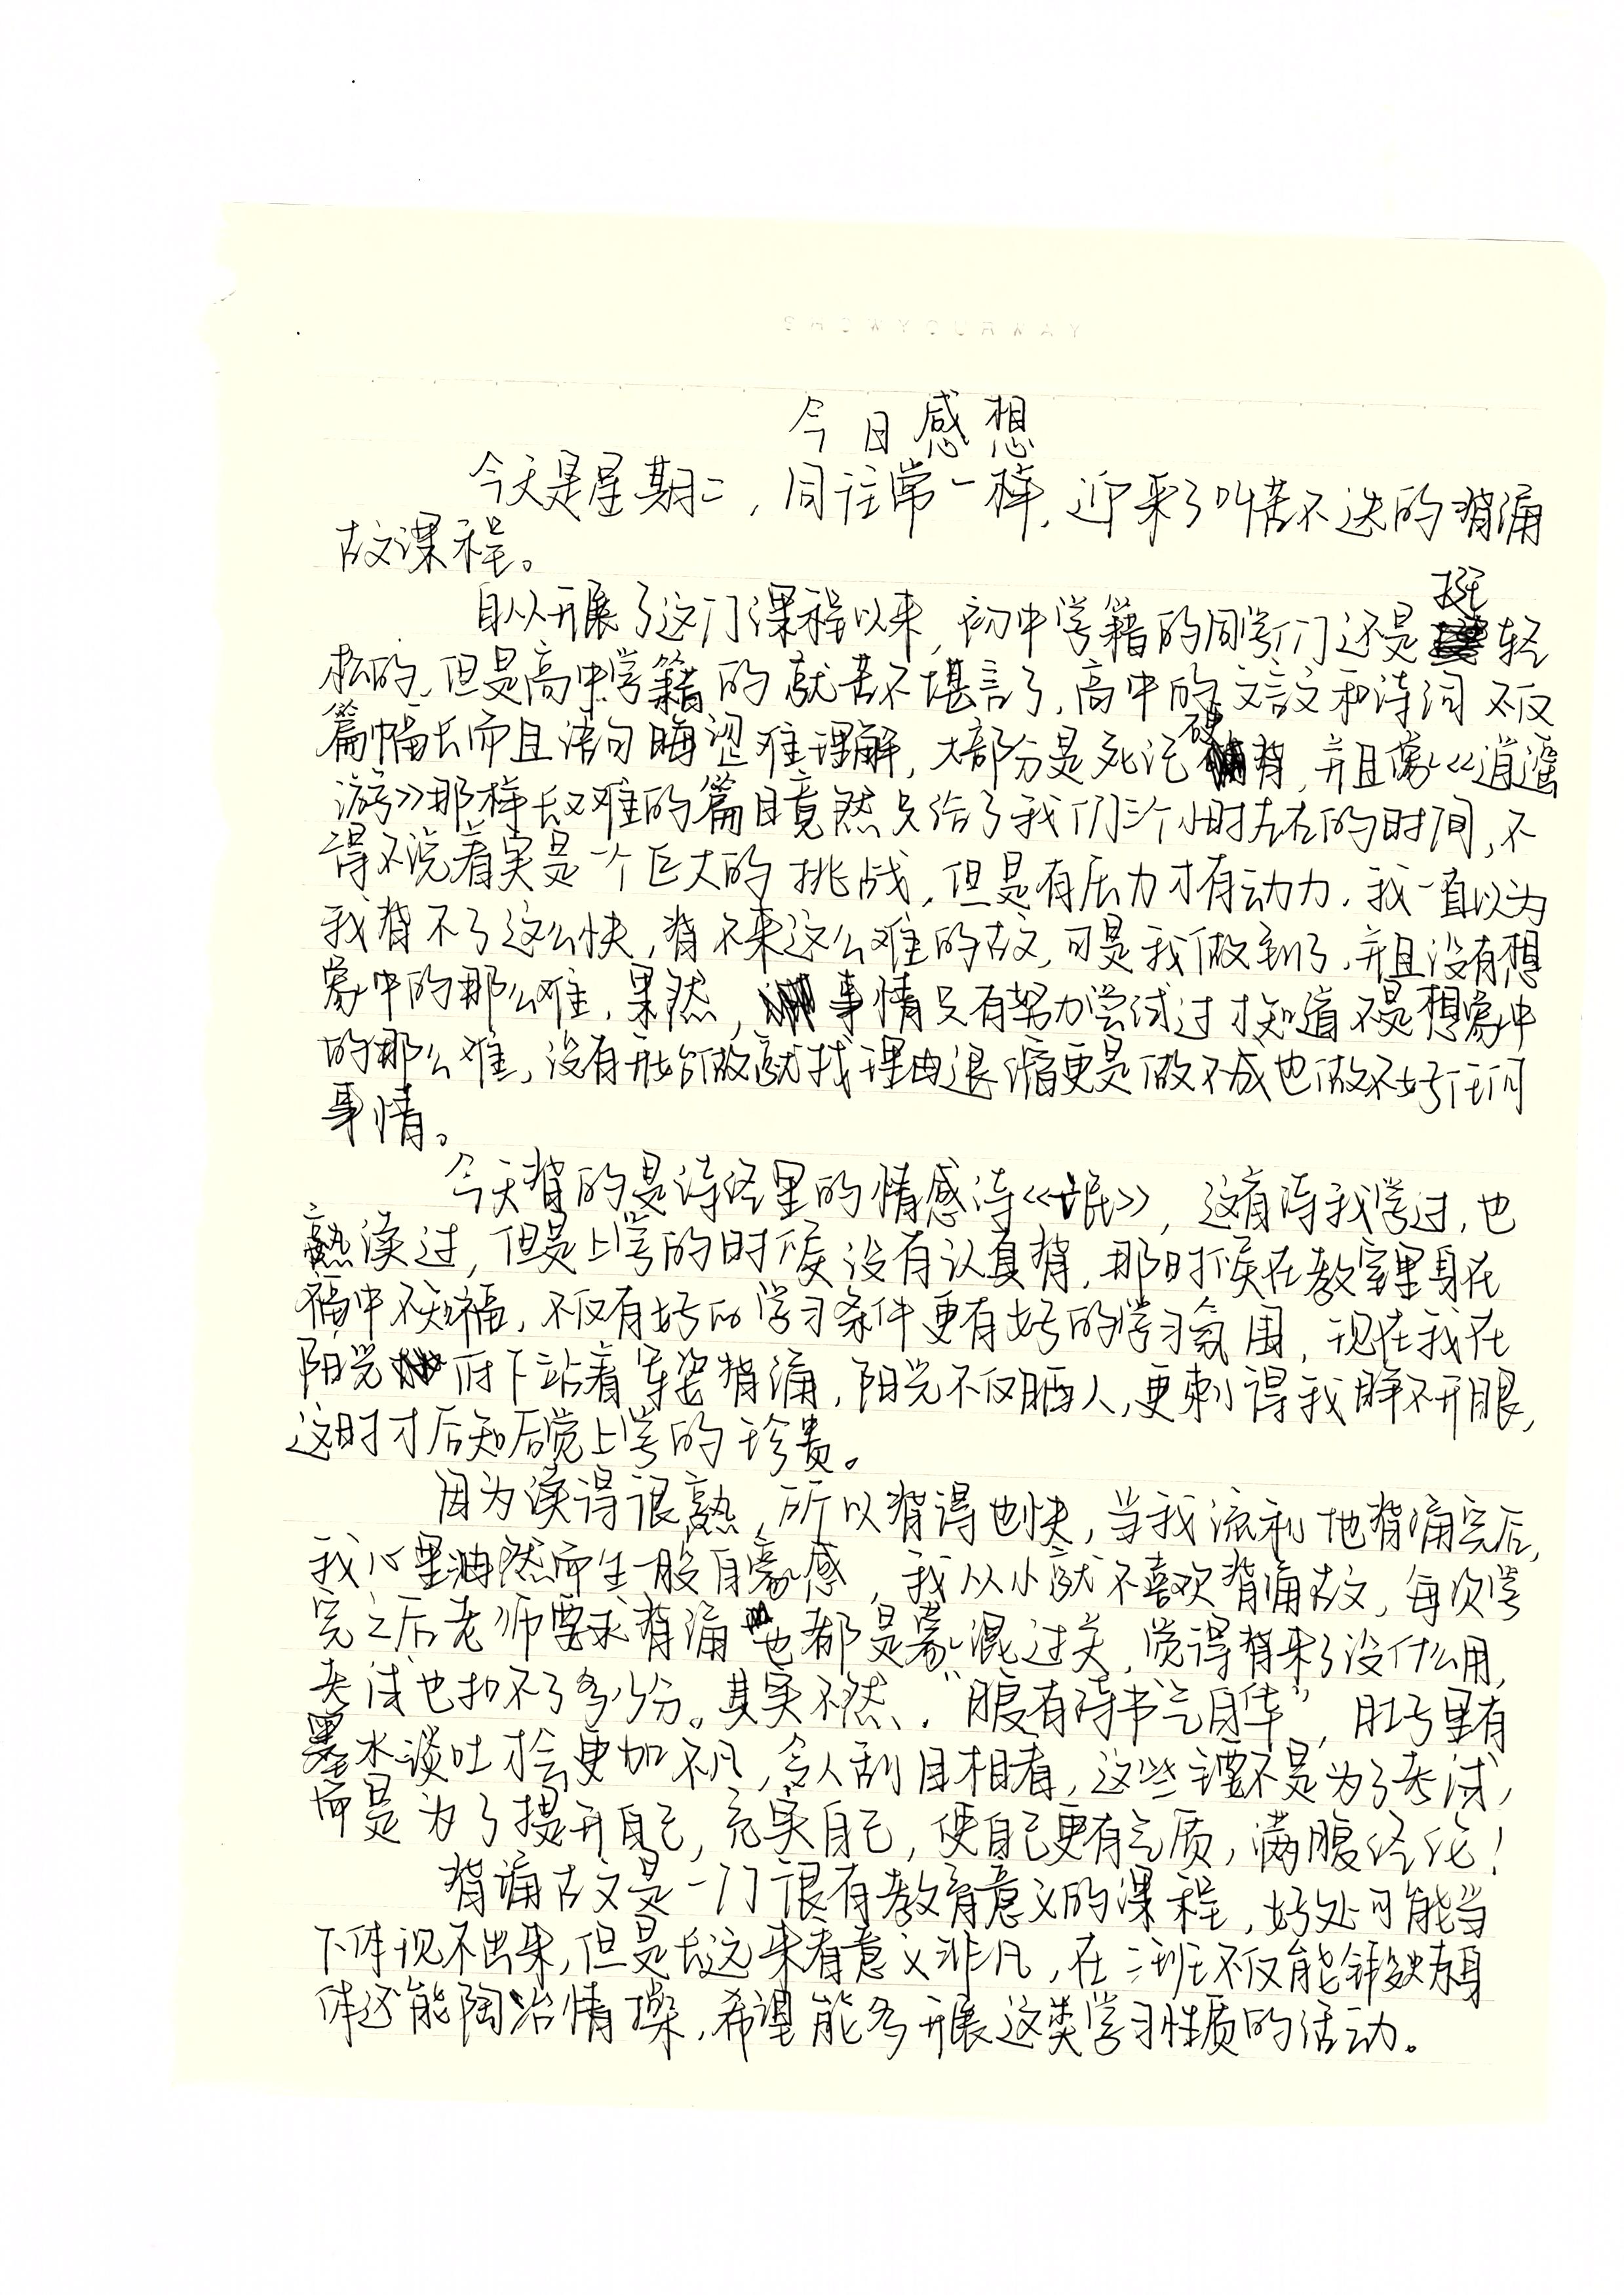 今日感想
今天是星期二，同往常一样，迎来了叫苦不迭的背诵
古文课程。
自从开展了这门课程以来，初中学籍的同学们还是挺轻
松的，但是高中学籍的就苦不堪言了，高中的文言文和诗词不仅
篇幅长而且语句晦涩难理解，大部分是死记硬背，并且像《逍遥
游》那样长又难的篇目竟然只给了我们三个小时左右的时间，不
得不说着实是一个巨大的挑战，但是有压力才有动力，我一直以为
我背不了这么快，背不来这么难的古文，可是我做到了，并且没有想
象中的那么难，果然，事情只有努力尝试过才知道不是想象中
的那么难，没有开始做就找理由退缩更是做不成也做不好任何
事情。
今天背的是诗经里的情感诗《氓》，这首诗我学过，也
熟读过，但是上学的时候没有认真背，那时候在教室里身在
福中不知福，不仅有好的学习条件更有好的学习氛围，现在我在
阳光底下站着军姿背诵，阳光不仅晒人，更刺得我睁不开眼，
这时才后知后觉上学的珍贵。
因为读得很熟，所以背得也快，当我流利地背诵完后，
我心里油然而生一股自豪感，我从小就不喜欢背诵古文，每次学
完之后老师要求背诵也都是蒙混过关，觉得背来了没什么用，
考试也扣不了多少分。其实不然，“腹有诗书气自华”，肚子里有
墨水谈吐才会更加不凡，令人刮目相看，这些主要不是为了考试，
而是为了提升自己，充实自己，使自己更有气质，满腹经纶！
背诵古文是一门很有教育意义的课程，好处可能当
下体现不出来，但是长远来看意义非凡，在三班不仅能锻炼身
体还能陶冶情操，希望能多开展这类学习性质的活动。